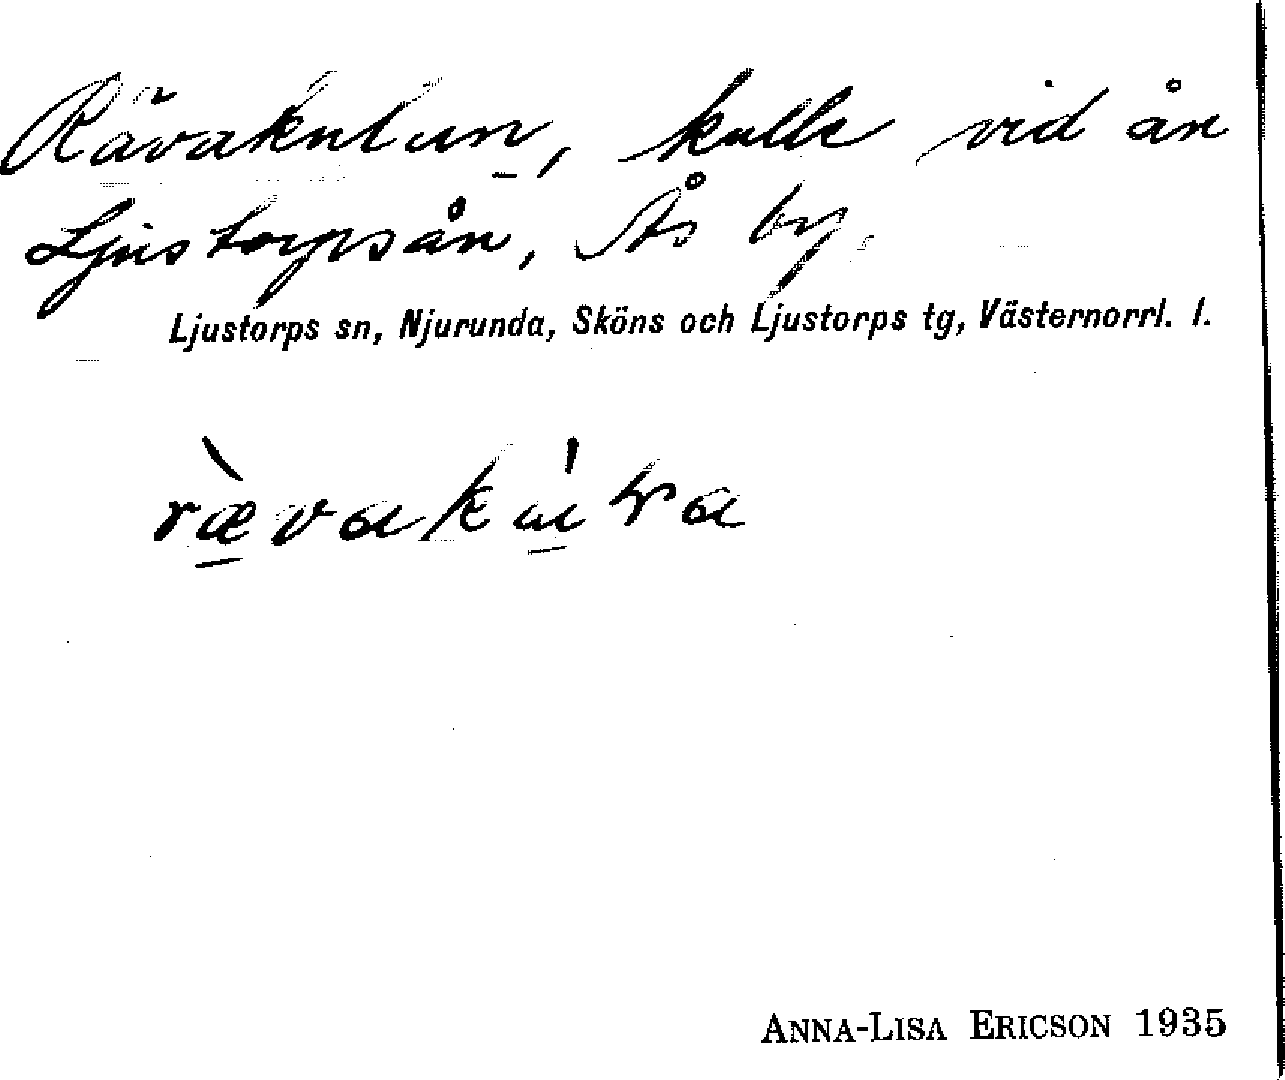 Rävakulan, kulle vid ån
Ljustorpsån, Ås by.
Ljustorps sn, Njurunda, Sköns och Ljustorps tg, Västernorrl. l.
ANNA-LISA ERICSON 1935